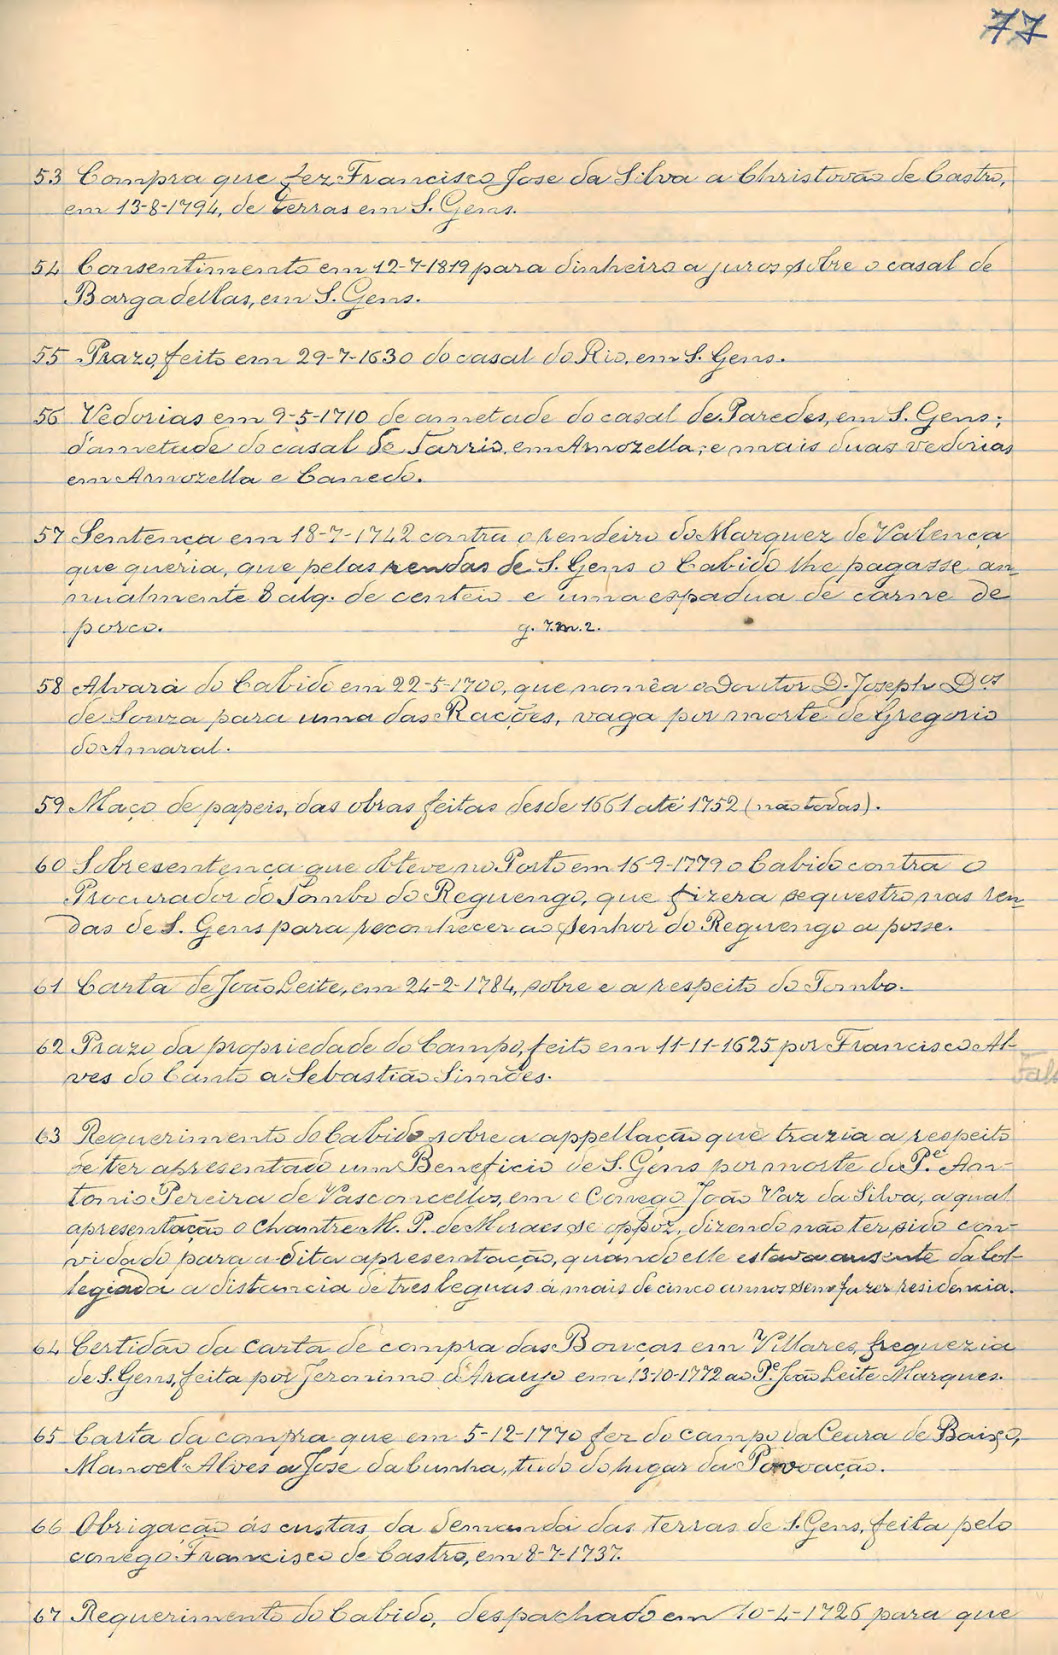 77
53 Compra que fez Francisco Jose da Silva a Christovão de Castro,
em 13-8-1794, de terras em S. Gens.
54 Consentimento em 12-7-1819 para dinheiro a juros sobre o casal de
Bargadellas, em S. Gens.
55 Prazo, feito em 29-7-1630 do casal do Rio, em S. Gens.
56 Vedorias em 9-5-1710 de ametade do casal de Paredes, em S. Gens;
d'ametade do casal de Tarrio, em Armozella; e mais duas vedorias
em Armozella e Canedo.
57 Sentença em 18-7-1742 contra o rendeiro do Marquez de Valença
que queria, que pelas rendas de S. Gens o Cabido lhe pagasse an-
nualmente 8 alq. de centeio e uma espadua de carne de
porco. g. 7. m. 2.
58 Alvará do Cabido em 22-5-1700, que nomêa o Doutor D. Joseph D.os
de Souza para uma das Rações, vaga por morte de Gregorio
do Amaral.
59 Maço de papeis, das obras feitas desde 1661 até 1752 (não todas).
60 Sobresentença que obteve no Porto em 16-9-1779 o Cabido contra o
Procurador do Tombo do Reguengo, que fizera sequestro nas ren-
das de S. Gens para reconhecer ao Senhor do Reguengo a posse.
61 Carta de João Leite, em 24-2-1784, sobre e a respeito do Tombo.
62 Prazo da propriedade do Campo, feito em 11-11-1625 por Francisco Al-
ves do Canto a Sebastião Simões.
63 Requerimento do Cabido sobre a appellação que trazia a respeito
de ter apresentado um Beneficio de S. Gens por morte do P.e An-
tonio Pereira de Vasconcellos, em o Conego João Vaz da Silva, a qual
apresentação o Chantre M. P. de Moraes se oppoz, dizendo não ter sido con-
vidado para a dita apresentação, quando elle estava ausente da Col-
legiada a distancia de tres leguas á mais de cinco annos sem fazer residencia.
64 Certidão da carta de compra das Bouças em Villares, freguezia
de S. Gens, feita por Jeronimo d'Araujo em 13-10-1772 ao P.e João Leite Marques.
65 Carta da compra que em 5-12-1770 fez do campo da Ceura de Baixo,
Manoel Alves a Jose da Cunha, tudo do lugar da Povoação.
66 Obrigação ás custas da demanda das terras de S. Gens, feita pelo
conego Francisco de Castro, em 8-7-1737.
67 Requerimento do Cabido, despachado em 10-4-1726 para que